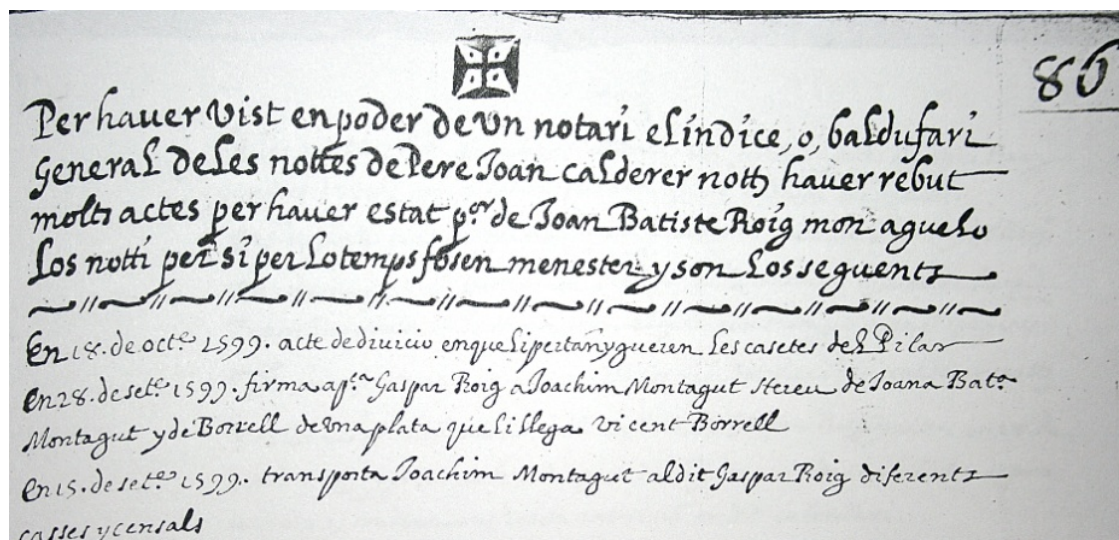 86
Per haver vist en poder de un notari el indice, o, baldufari
General de Les nottes de Pere Joan calderer notþ haver rebut
molts actes per haver estat p.or de Joan Batiste Roig mon aguelo
Los notti per si per Lo temps fosen menester y son Los seguents
En 18. de octe. 1599. acte de divicio en que li pertanygueren Les casetes del Pilar
en 28. de sete. 1599. firma apca Gaspar Roig a Joachim Montagut Hereu de Joana Bata
Montagut y de Borrell de vna plata que li llega vicent Borrell
en 15. de sete. 1599. transporta Joachim Montagut al dit Gaspar Roig diferents
casses y censals